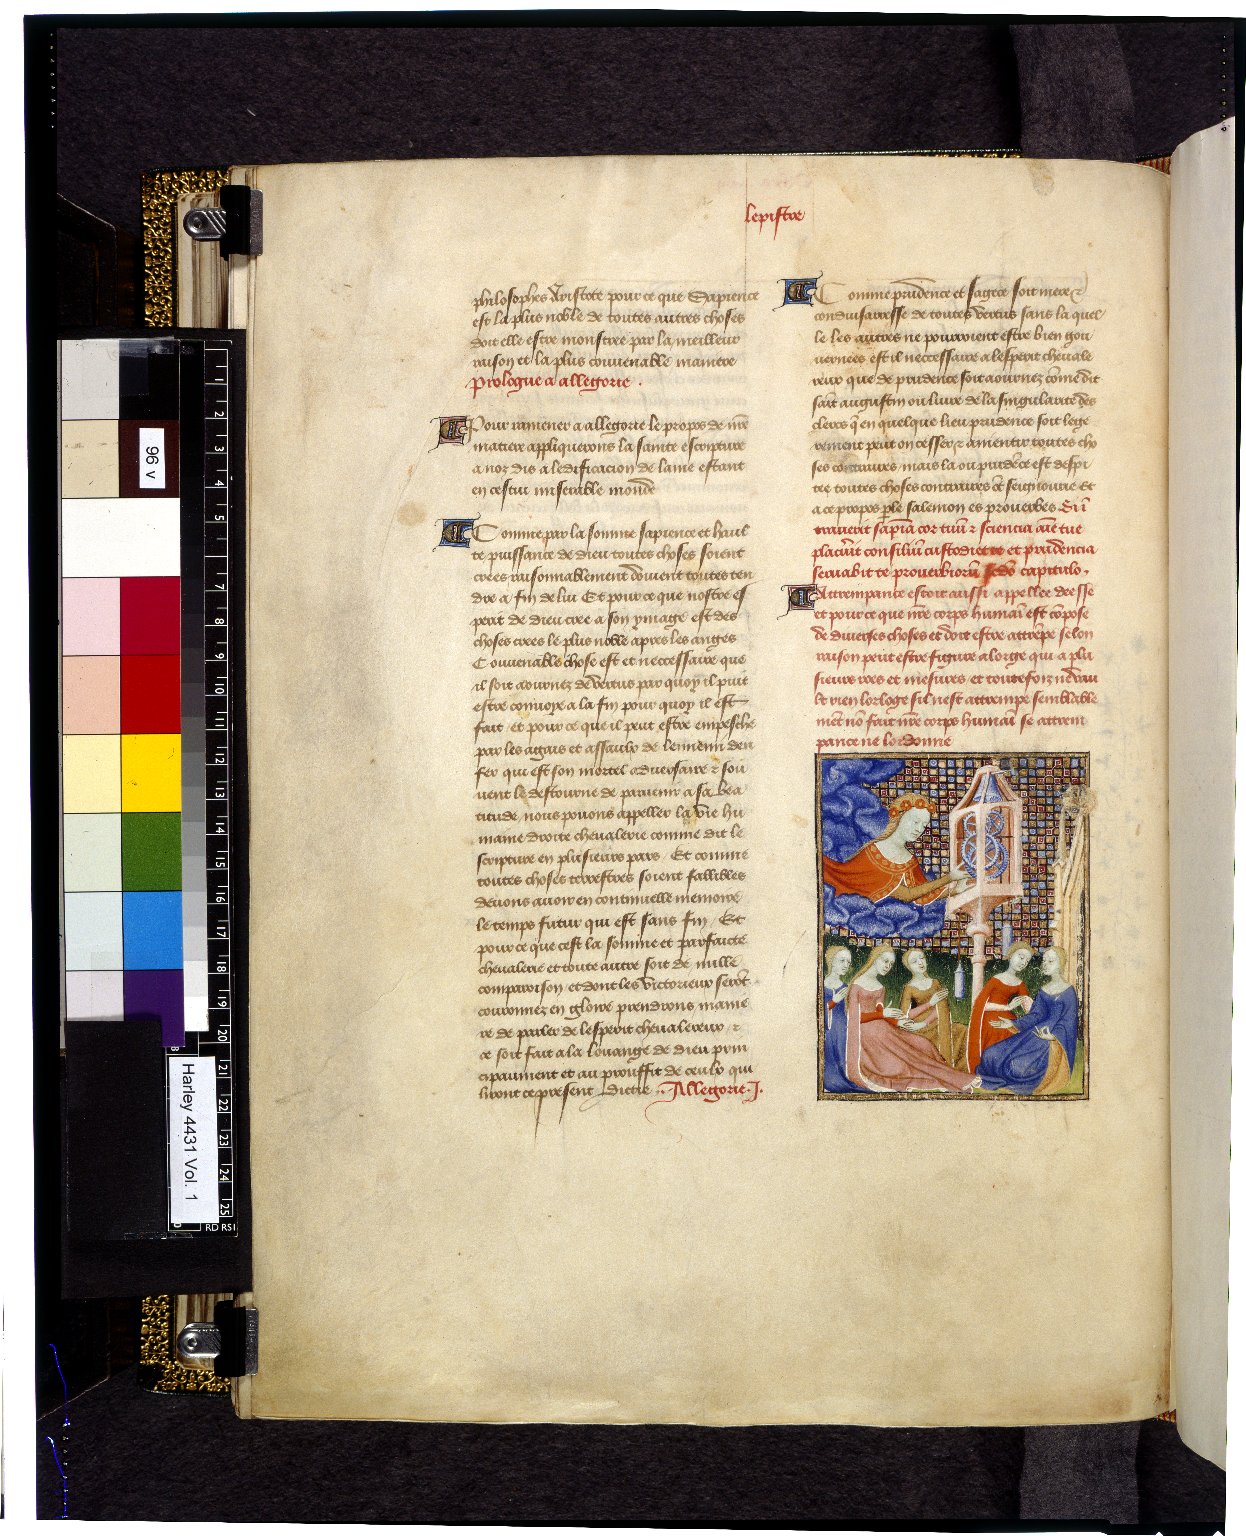 lepistre
philosophes Aristote pour ce que Sapience
est la plus noble de toutes autres choses
doit elle estre monstree par la meilleur
raison et la plus couvenable maniere
Prologue a allegorie .
Pour ramener a allegorie le propos de nr̄e
matiere appliquerons la sainte escripture
a noz dis a ledificacion de lame estant
en cestui miserable monde
Comme par la somme sapience et haul
te puissance de dieu toutes choses soient
crees raisonnablement doivent toutes ten
dre a fin de lui Et pour ce que nostre es
perit de dieu cree a son ymage est des
choses crees le plus noble apres les anges
Couvenable chose est et neccessaire que
il soit aournez de vertus par quoy il puit
estre convoye a la fin pour quoy il est
fait et pour ce que il peut estre empesche
par les agais et assaulx de lennemi den
fer qui est son mortel adversaire et sou
vent le destourne de parvenir a sa bea
titude nous pouons appeller la vie hu
maine droite chevalerie comme dit le
scripture en plusieurs pars Et comme
toutes choses terrestres soient faillibles
devons avoir en continuelle memoire
le temps futur qui est sans fin Et
pour ce que cest la somme et parfaicte
chevalerie et toute autre soit de nulle
comparoison et dont les victorieux serōt
couronnez en gloire prendrons manie
re de parler de lesperit chevalereux et
ce soit fait a la louange de dieu prin
cipaument et au prouffit de ceulx qui
liront ce present dictie .. Allegorie . J .
Comme prudence et sagece soit mere et
conduisarresse de toutes vertus sans la quel
le les autres ne pourroient estre bien gou
vernees est il neccessaire a lesperit chevale
reux que de prudence soit aournez cōme dit
saīt augustin ou livre de la singularite des
clercs q̄ en quelque lieu prudence soit lege
rement peut on cesser et amentir toutes cho
ses contraires mais la ou prudēce est despi
tee toutes choses contraires ōt seignourie Et
a ce propos ple salemon es proverbes Si ī
traverit sapīa cor tuū et sciencia aīe tue
placuīt consiliū custodiet te et prudencia
servabit te proverbiorū s̄cdo capitulo .
Attrempance estoit aussi appellee deesse
et pour ce que nr̄e corps humaī est cōpose
de diverses choses et doit estre attrēpe selon
raison peut estre figure a lorloge qui a plu
sieurs roes et mesures et toutefoiz ne vau
lt rien lorloge sil nest attrempe semblable
mēt nō fait nr̄e corps humaī se attrem
pance ne lordonne
96 v
Harley 4431 Vol. 1
1
2
3
4
5
7
8
9
10
11
12
13
14
15
16
17
18
19
20
21
22
23
24
25